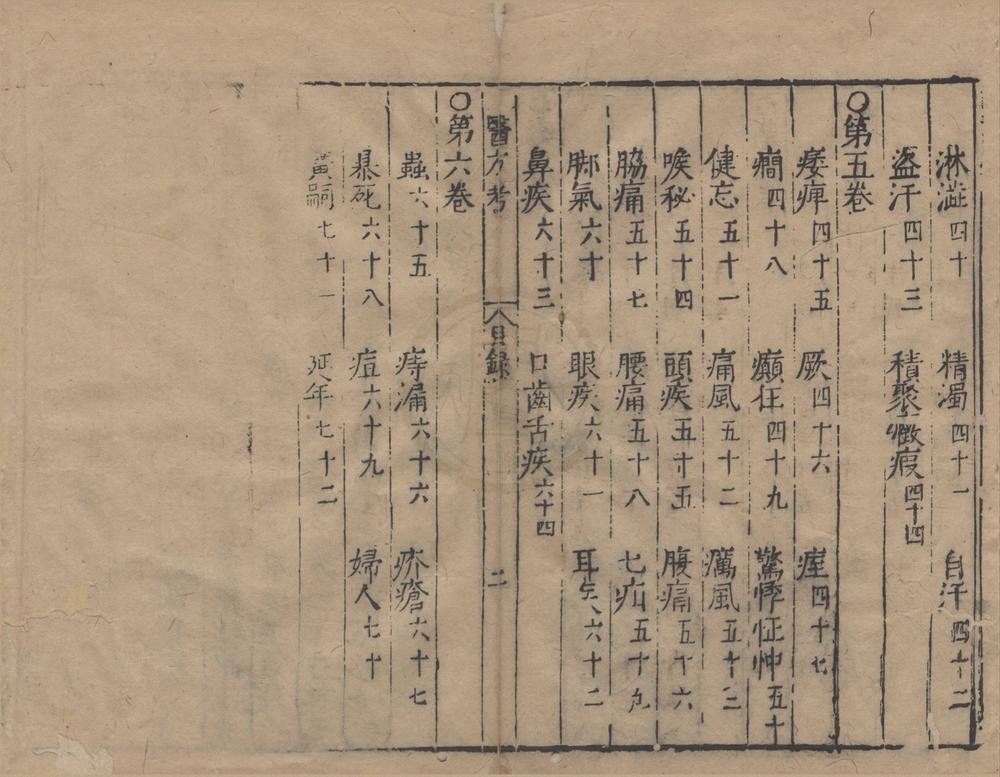 淋澁四十 精濁四十一 自汗四十二
盜汗四十三 積聚癥瘕四十四
○第五卷
痿痺四十五 厥四十六 痓四十七
癇四十八 癲狂四十九 驚悸怔忡五十
健忘五十一 痛風五十二 癘風五十三
喉秘五十四 頭疾五十五 腹痛五十六
脇痛五十七 腰痛五十八 七疝五十九
脚氣六十 眼疾六十一 耳疾六十二
鼻疾六十三 口齒舌疾六十四
醫方考 目錄 二
○第六卷
蟲六十五 痔漏六十六 疥瘡六十七
暴死六十八 痘六十九 婦人七十
廣嗣七十一 延年七十二